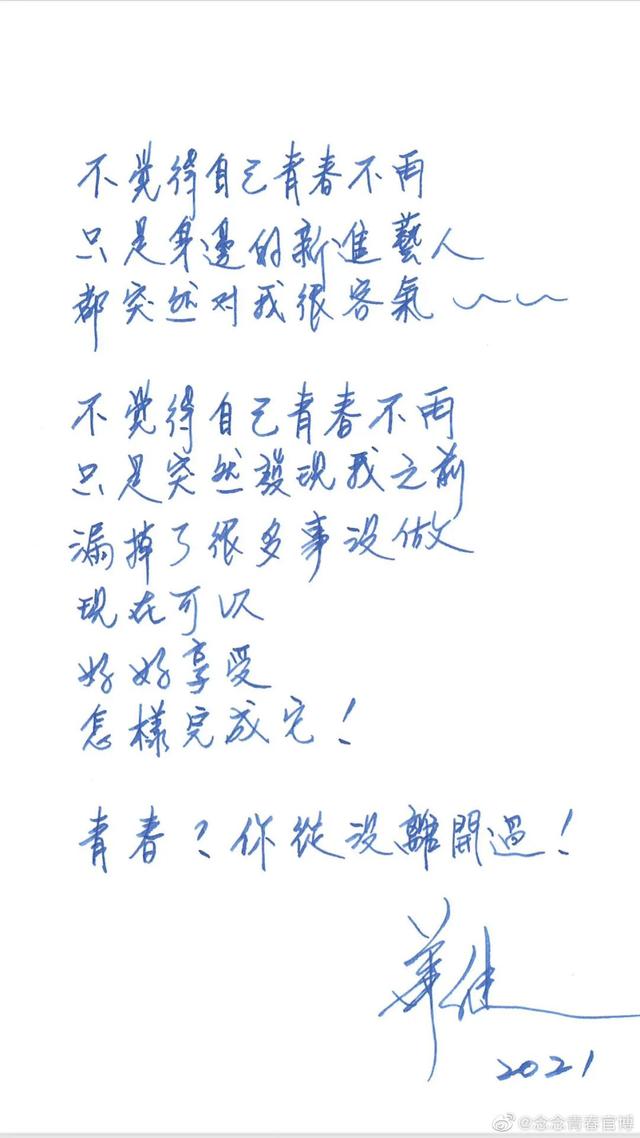 不覺得自己青春不再
只是身邊的新進藝人
都突然对我很客氣~~
不覺得自己青春不再
只是突然發現我之前
漏掉了很多事没做
現在可以
好好享受
怎樣完成它!
青春?你從没離開過!
華健
2021
@念念青春官博